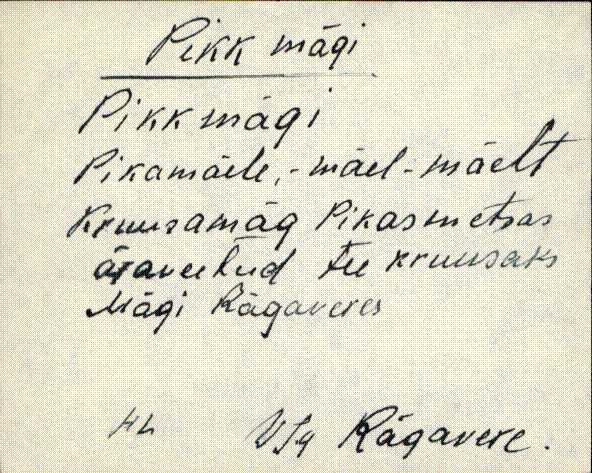 Pikk mägi
Pikkmägi
Pikamäele, -mäel -mäelt
Kruusamäg Pikasmetsas
äraveetud tee kruusaks
Mägi Rägaveres
HL VJg Rägavere.